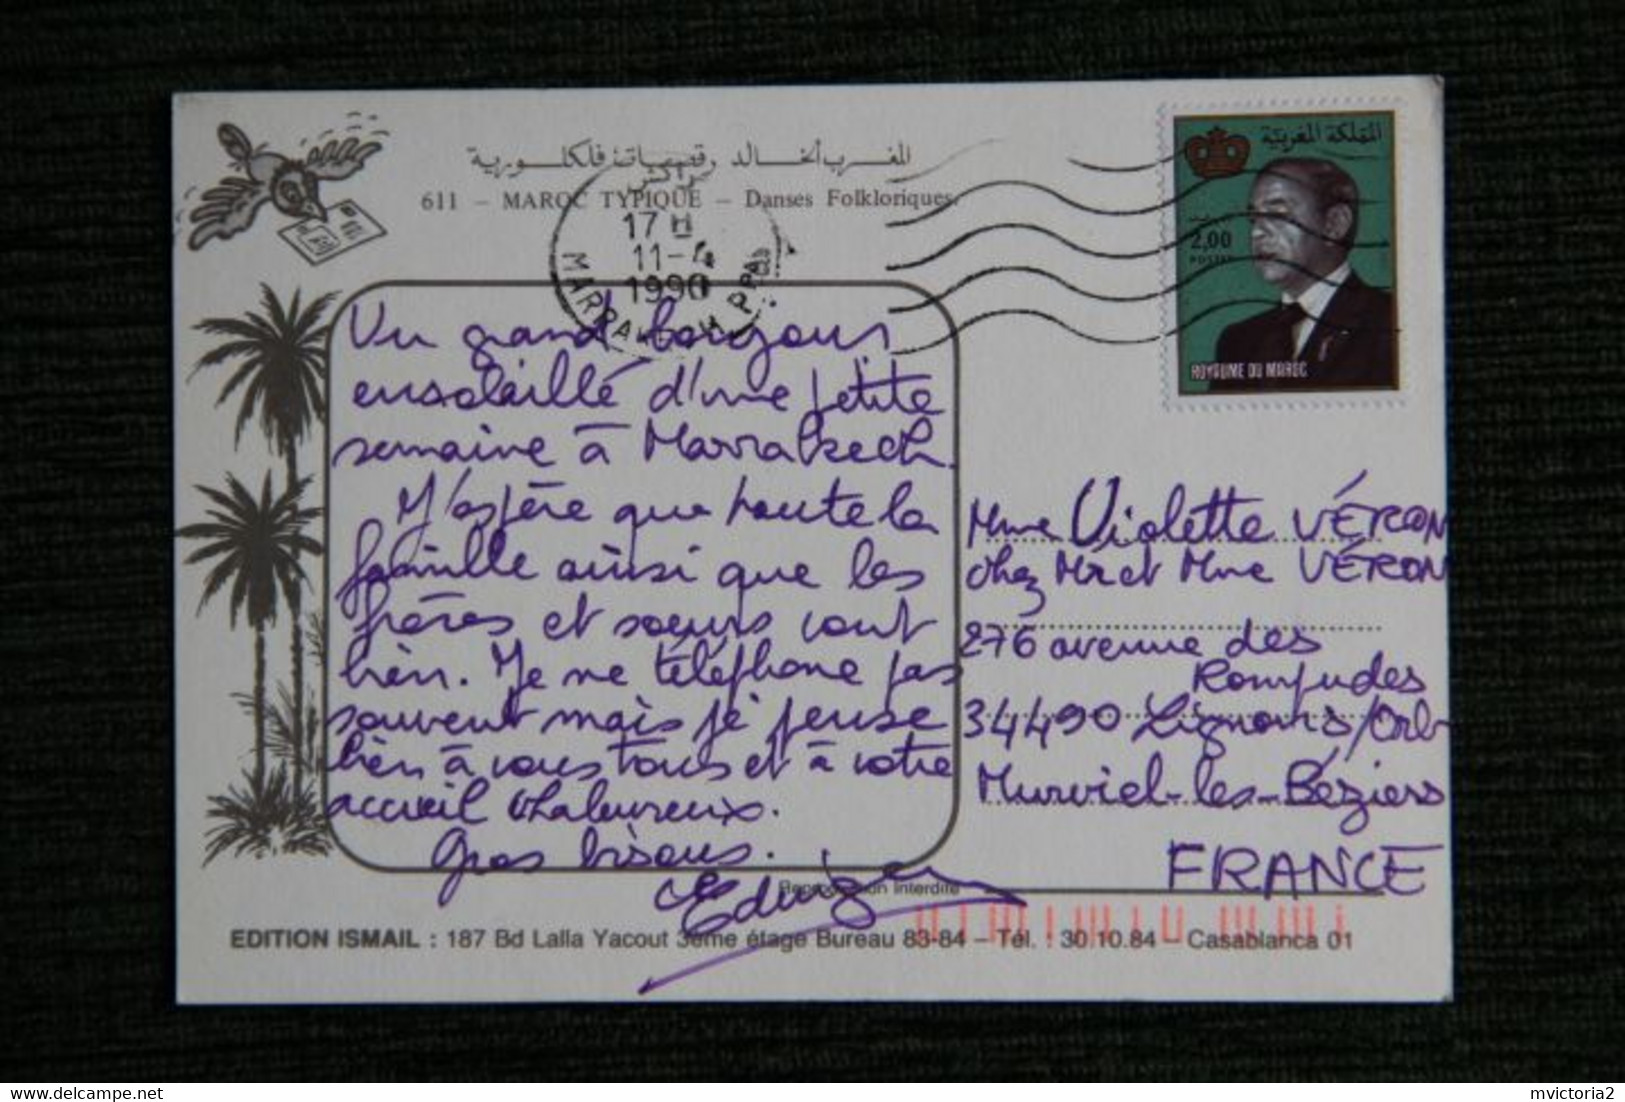 المغرب الخالد رقصات فلكلورية
611 – MAROC TYPIQUE – Danses Folkloriques.
مراكش
17 H
11-4
1990
MARRAKECH PPAL
المملكة المغربية
2,00
POSTES
ROYAUME DU MAROC
Un grand bonjour
ensoleillé d'une petite
semaine à Marrakech.
J'espère que toute la
famille ainsi que les
frères et soeurs vont
bien. Je ne téléphone pas
souvent mais je pense
bien à vous tous et à votre
accueil chaleureux.
Gros bisous.
Mme Violette VÉRON
chez Mr et Mme VÉRON
276 avenue des
Rompudes
34490 Lignans/Orb
Murviel-les-Béziers
FRANCE
Reproduction Interdite
EDITION ISMAIL : 187 Bd Lalla Yacout 3ème étage Bureau 83-84 – Tél. : 30.10.84 – Casablanca 01
delcampe.net
mvictoria2